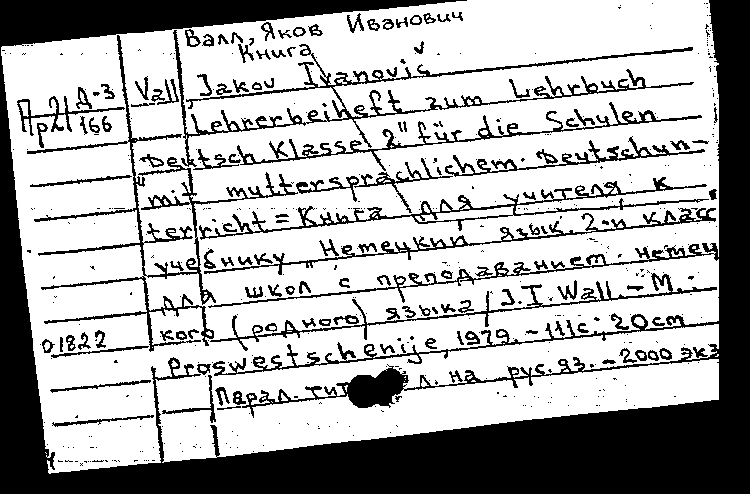 Валл, Яков Иванович
Книга
Пр2| Д-3 Vall, Jakov Ivanovič
Пр2| 166 Lehrerbeiheft zum Lehrbuch
"Deutsch. Klasse 2" für die Schulen
mit muttersprachlichem Deutschun-
terricht = Книга для учителя к
учебнику "Немецкий язык. 2-й класс
для школ с преподаванием немец
кого (родного) языка / J. I. Wall. – М.:
01822
Proswestschenije, 1979. – 111 с.; 20 cm
Парал. тит л. на рус. яз. – 2000 экз